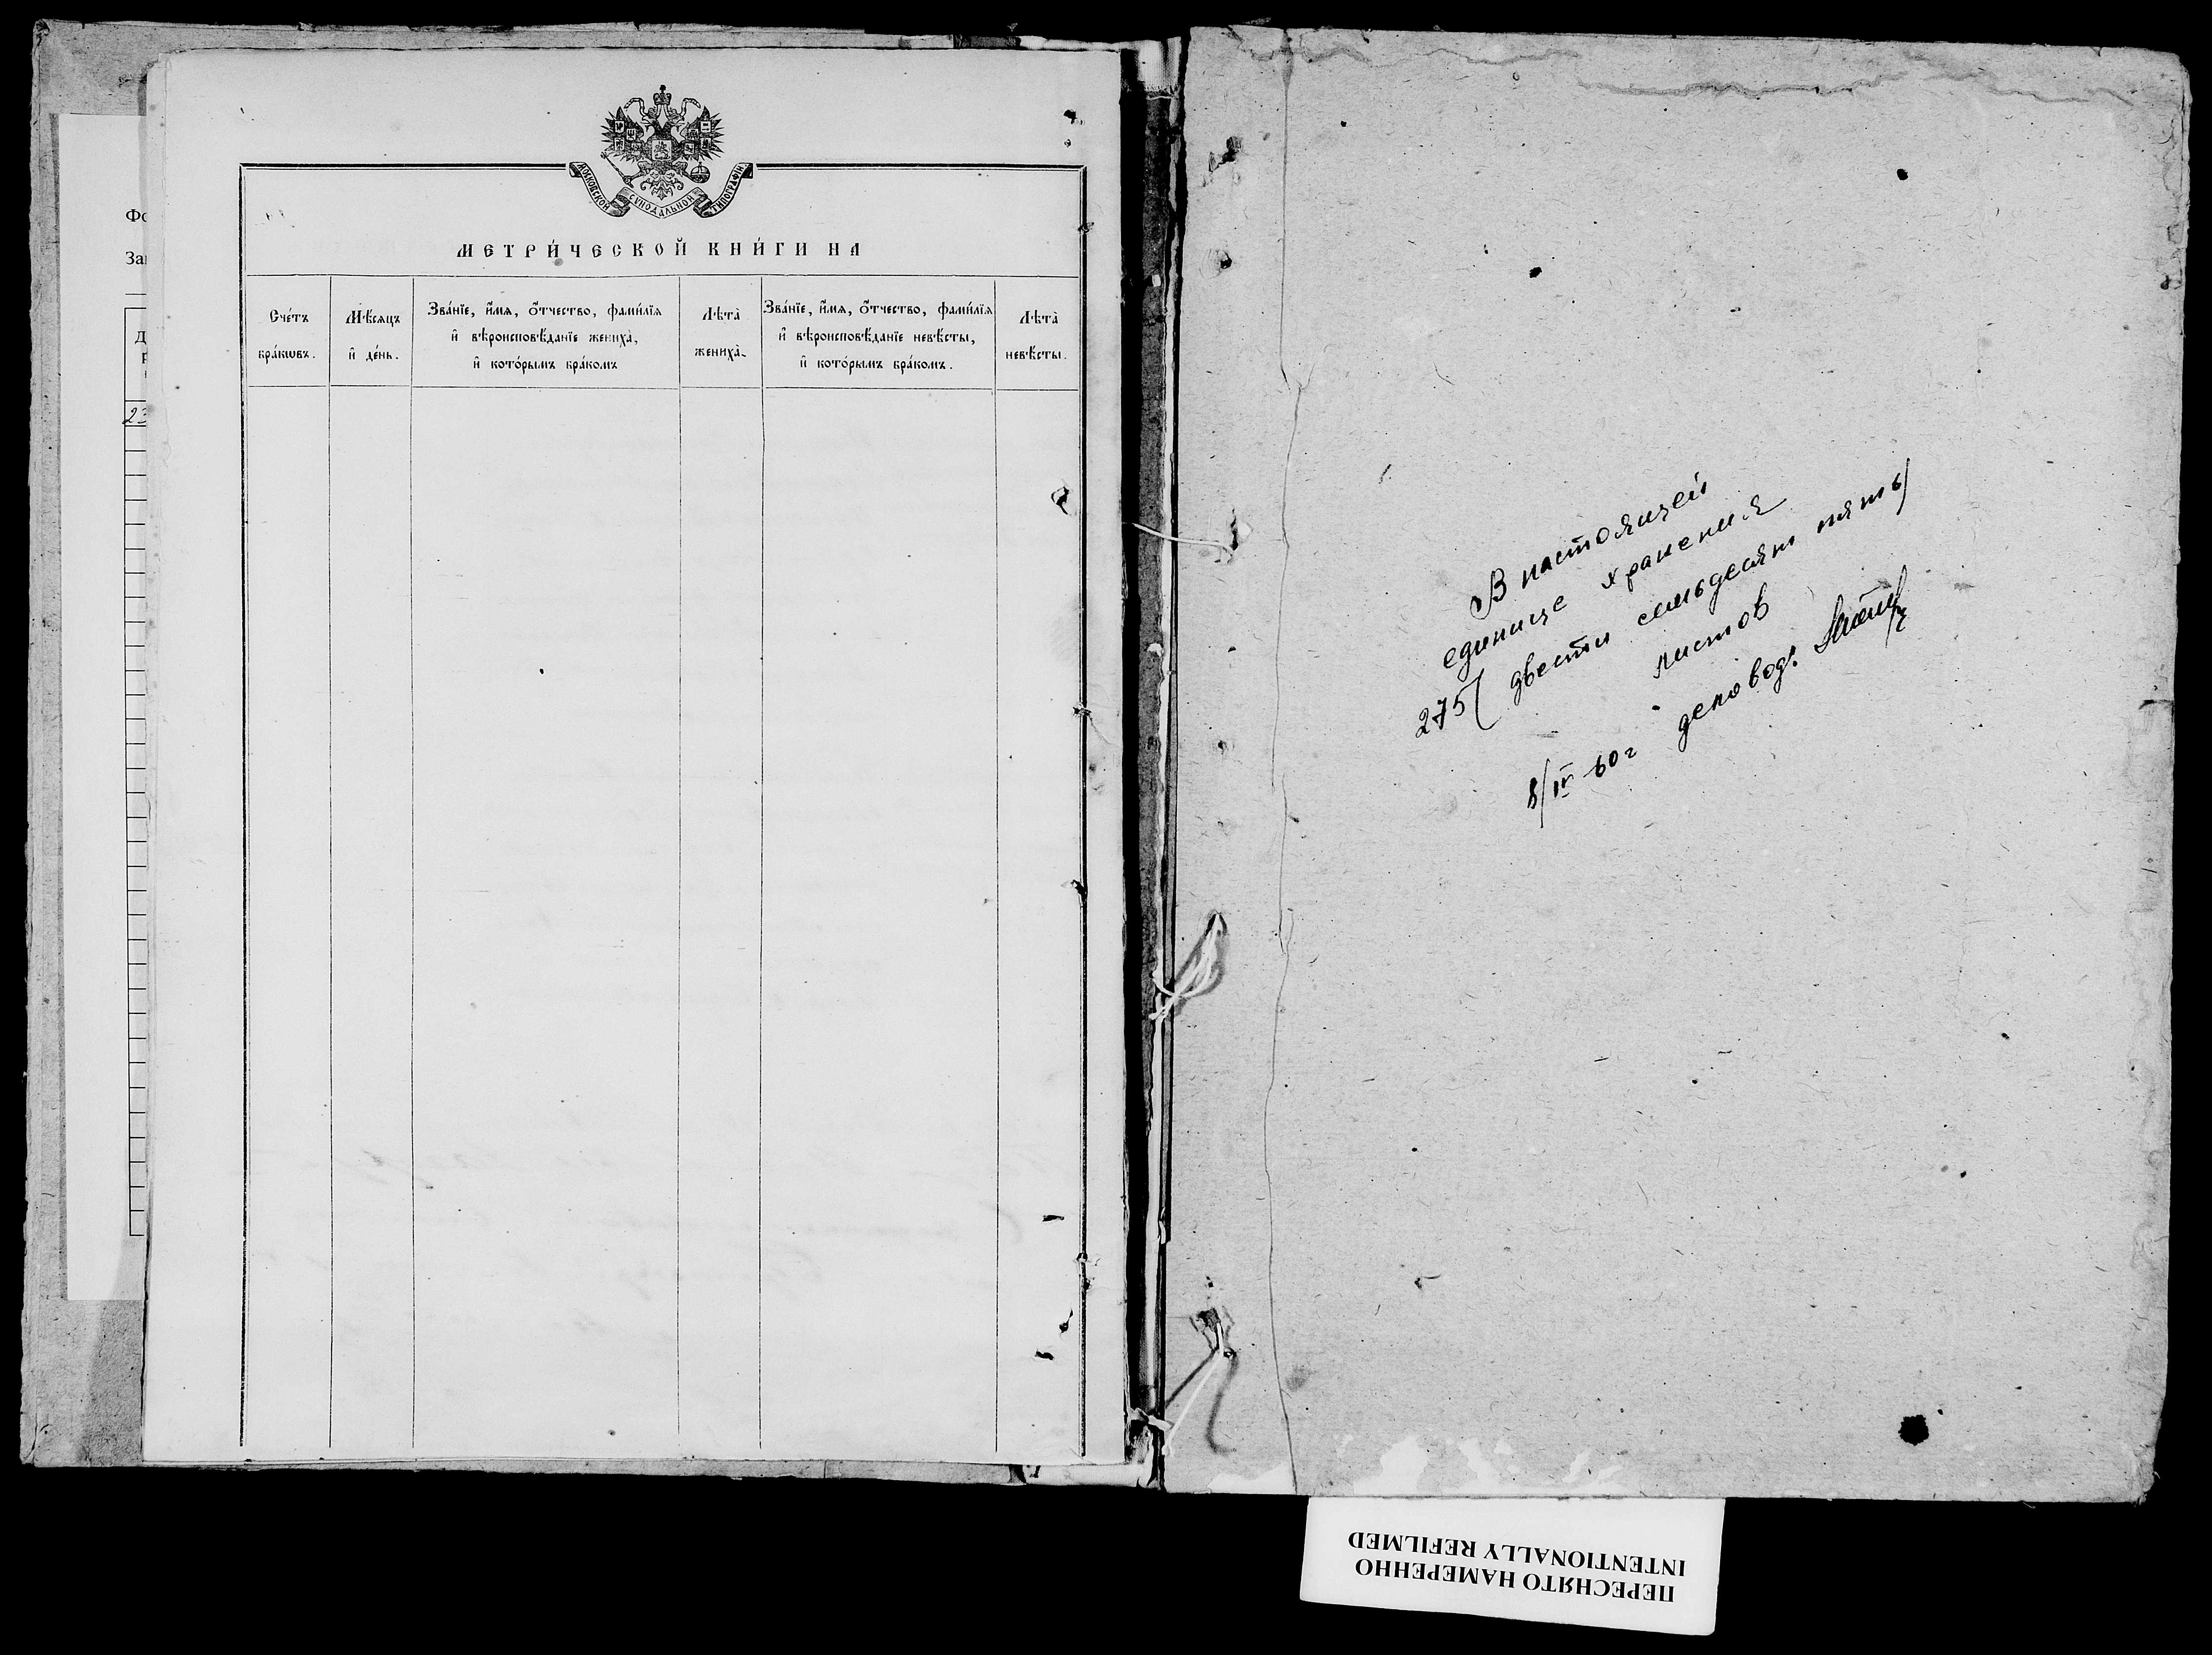 Фо
За
Д
23
МОСКОВСКОЙ СѴНОДАЛЬНОЙ ТИПОГРАФІИ
МЕТРИ́ЧЕСКОЙ КНИ́ГИ НА
Сче́тъ бра́кѡвъ.
Мѣ́сяцъ и҆ де́нь.
Зва́нїе, и҆́мѧ, ѻ҆́тчество, фами́лїѧ
и҆ вѣроисповѣ́данїе жениха̀,
и҆ кото́рымъ бра́комъ
Лѣта̀ жениха̀.
Зва́нїе, и҆́мѧ, ѻ҆́тчество, фами́лїѧ
и҆ вѣроисповѣ́данїе невѣ́сты,
и҆ кото́рымъ бра́комъ.
Лѣта̀ невѣ́сты.
В настоящей
единице хранения
275 (двести семьдесят пять)
листов
8/IV 60 г деловод.
ПЕРЕСНЯТО НАМЕРЕННО
INTENTIONALLY REFILMED